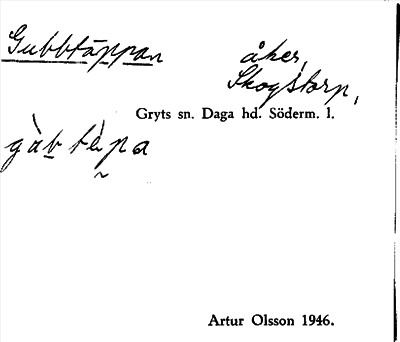 Gubbtäppan åker,
Skogstorp,
Gryts sn. Daga hd. Söderm. l.
gàb tèpa
Artur Olsson 1946.